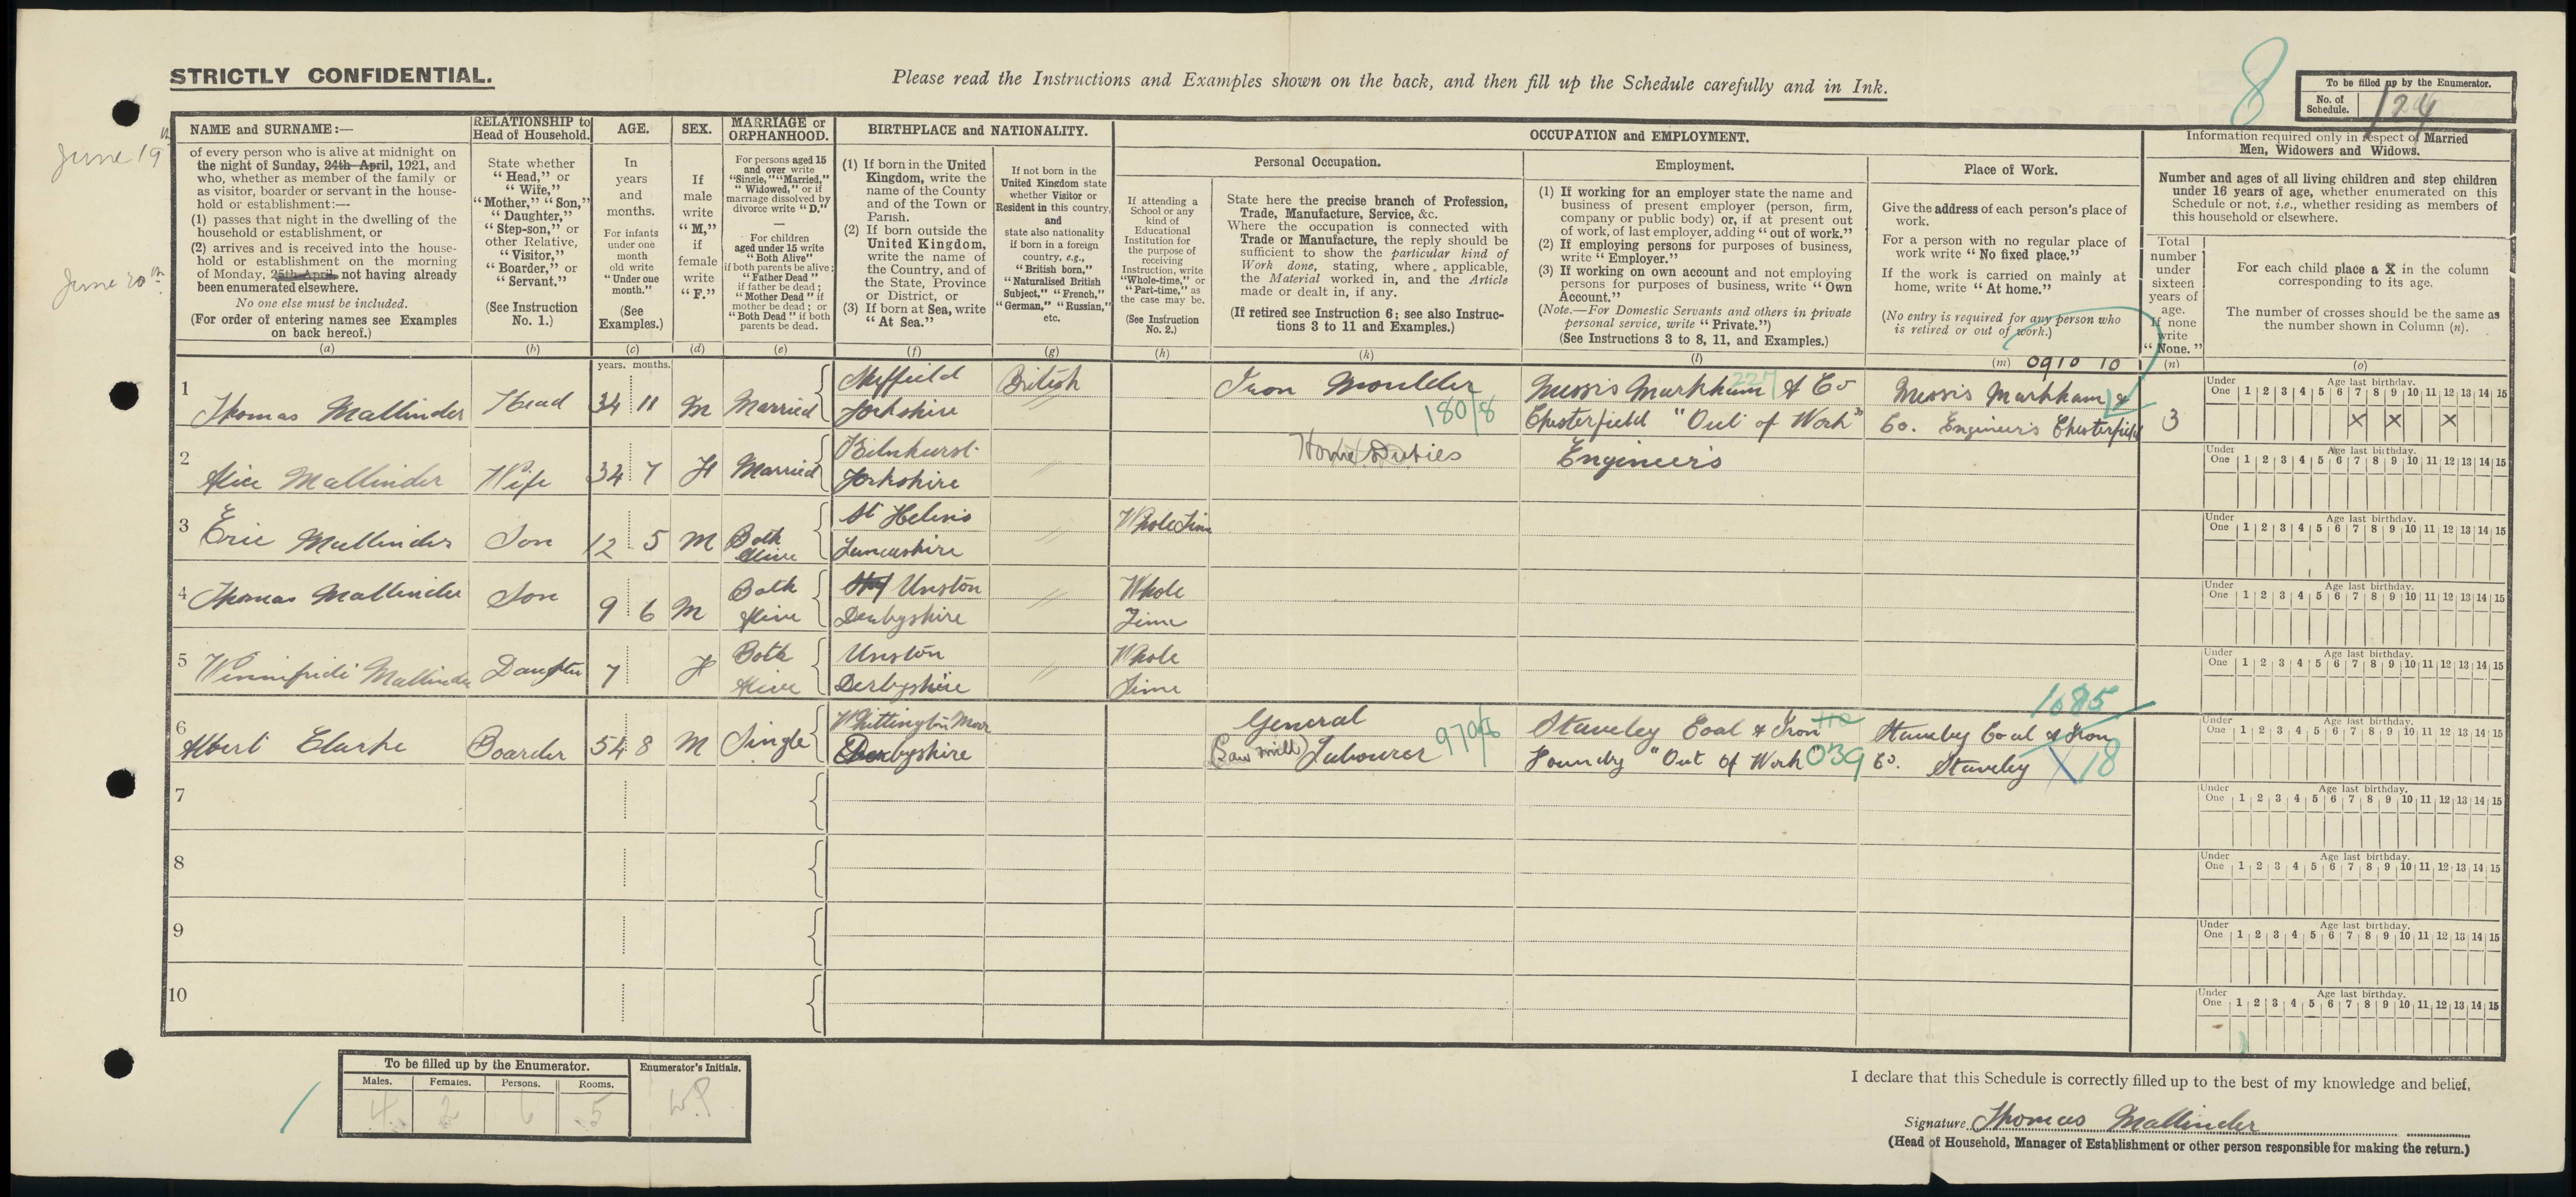 STRICTLY CONFIDENTIAL.
Please read the Instructions and Examples shown on the back, and then fill up the Schedule carefully and in Ink.
8
To be filled up by the Enumerator.
No. of Schedule. 124
June 19th
June 20th
NAME and SURNAME:—
of every person who is alive at midnight on
the night of Sunday, 24th April, 1921, and
who, whether as member of the family or
as visitor, boarder or servant in the house-
hold or establishment:—
(1) passes that night in the dwelling of the
household or establishment, or
(2) arrives and is received into the house-
hold or establishment on the morning
of Monday, 25th April not having already
been enumerated elsewhere.
No one else must be included.
(For order of entering names see Examples
on back hereof.)
(a)
RELATIONSHIP to
Head of Household.
State whether
"Head," or
"Wife,"
"Mother," "Son,"
"Daughter,"
"Step-son," or
other Relative,
"Visitor,"
"Boarder," or
"Servant."
(See Instruction
No. 1.)
(b)
AGE.
In
years
and
months.
For infants
under one
month
old write
"Under one
month."
(See
Examples.)
(c)
years. months.
SEX.
If
male
write
"M,"
if
female
write
"F."
(d)
MARRIAGE or
ORPHANHOOD.
For persons aged 15
and over write
"Single," "Married,"
"Widowed," or if
marriage dissolved by
divorce write "D."
—
For children
aged under 15 write
"Both Alive"
if both parents be alive;
"Father Dead"
if father be dead;
"Mother Dead" if
mother be dead; or
"Both Dead" if both
parents be dead.
(e)
BIRTHPLACE and NATIONALITY.
(1) If born in the United
Kingdom, write the
name of the County
and of the Town or
Parish.
(2) If born outside the
United Kingdom,
write the name of
the Country, and of
the State, Province
or District, or
(3) If born at Sea, write
"At Sea."
(f)
If not born in the
United Kingdom state
whether Visitor or
Resident in this country,
and
state also nationality
if born in a foreign
country, e.g.,
"British born,"
"Naturalised British
Subject," "French,"
"German," "Russian,"
etc.
(g)
OCCUPATION and EMPLOYMENT.
If attending a
School or any
kind of
Educational
Institution for
the purpose of
receiving
Instruction, write
"Whole-time," or
"Part-time," as
the case may be.
(See Instruction
No. 2.)
(h)
Personal Occupation.
State here the precise branch of Profession,
Trade, Manufacture, Service, &c.
Where the occupation is connected with
Trade or Manufacture, the reply should be
sufficient to show the particular kind of
Work done, stating, where applicable,
the Material worked in, and the Article
made or dealt in, if any.
(If retired see Instruction 6; see also Instruc-
tions 3 to 11 and Examples.)
(k)
Employment.
(1) If working for an employer state the name and
business of present employer (person, firm,
company or public body) or, if at present out
of work, of last employer, adding "out of work."
(2) If employing persons for purposes of business,
write "Employer."
(3) If working on own account and not employing
persons for purposes of business, write "Own
Account."
(Note.—For Domestic Servants and others in private
personal service, write "Private.")
(See Instructions 3 to 8, 11, and Examples.)
(l)
Place of Work.
Give the address of each person's place of
work.
For a person with no regular place of
work write "No fixed place."
If the work is carried on mainly at
home, write "At home."
(No entry is required for any person who
is retired or out of work.)
(m) 0910 10
Information required only in respect of Married
Men, Widowers and Widows.
Number and ages of all living children and step children
under 16 years of age, whether enumerated on this
Schedule or not, i.e., whether residing as members of
this household or elsewhere.
Total
number
under
sixteen
years of
age.
If none
write
"None."
(n)
For each child place a X in the column
corresponding to its age.
The number of crosses should be the same as
the number shown in Column (n).
(o)
Under One Age last birthday. 1 2 3 4 5 6 7 8 9 10 11 12 13 14 15
1 Thomas Mallinder Head 34 11 M Married Sheffield Yorkshire British Iron Moulder 180/8 Messrs Markham 227 & Co Chesterfield "Out of Work" Messrs Markham & Co. Engineers Chesterfield 3 X X X
Under One Age last birthday. 1 2 3 4 5 6 7 8 9 10 11 12 13 14 15
2 Alice Mallinder Wife 34 7 F Married Kilnhurst Yorkshire Home Duties Engineers
Under One Age last birthday. 1 2 3 4 5 6 7 8 9 10 11 12 13 14 15
3 Eric Mallinder Son 12 5 M Both Alive St Helens Lancashire Whole Time
Under One Age last birthday. 1 2 3 4 5 6 7 8 9 10 11 12 13 14 15
4 Thomas Mallinder Son 9 6 M Both Alive Unston Derbyshire Whole Time
Under One Age last birthday. 1 2 3 4 5 6 7 8 9 10 11 12 13 14 15
5 Winnifride Mallinder Daughter 7 F Both Alive Unston Derbyshire Whole Time
Under One Age last birthday. 1 2 3 4 5 6 7 8 9 10 11 12 13 14 15
6 Albert Clarke Boarder 54 8 M Single Whittington Moor Derbyshire General (Saw Mill) Labourer 970/8 Staveley Coal & Iron Foundry "Out of Work 039 Staveley Coal & Iron Co. Staveley 1085 18
Under One Age last birthday. 1 2 3 4 5 6 7 8 9 10 11 12 13 14 15
7
Under One Age last birthday. 1 2 3 4 5 6 7 8 9 10 11 12 13 14 15
8
Under One Age last birthday. 1 2 3 4 5 6 7 8 9 10 11 12 13 14 15
9
Under One Age last birthday. 1 2 3 4 5 6 7 8 9 10 11 12 13 14 15
10
Under One Age last birthday. 1 2 3 4 5 6 7 8 9 10 11 12 13 14 15
To be filled up by the Enumerator.
Males. Females. Persons. Rooms.
4 2 6 5
Enumerator's Initials.
I declare that this Schedule is correctly filled up to the best of my knowledge and belief,
Signature Thomas Mallinder
(Head of Household, Manager of Establishment or other person responsible for making the return.)